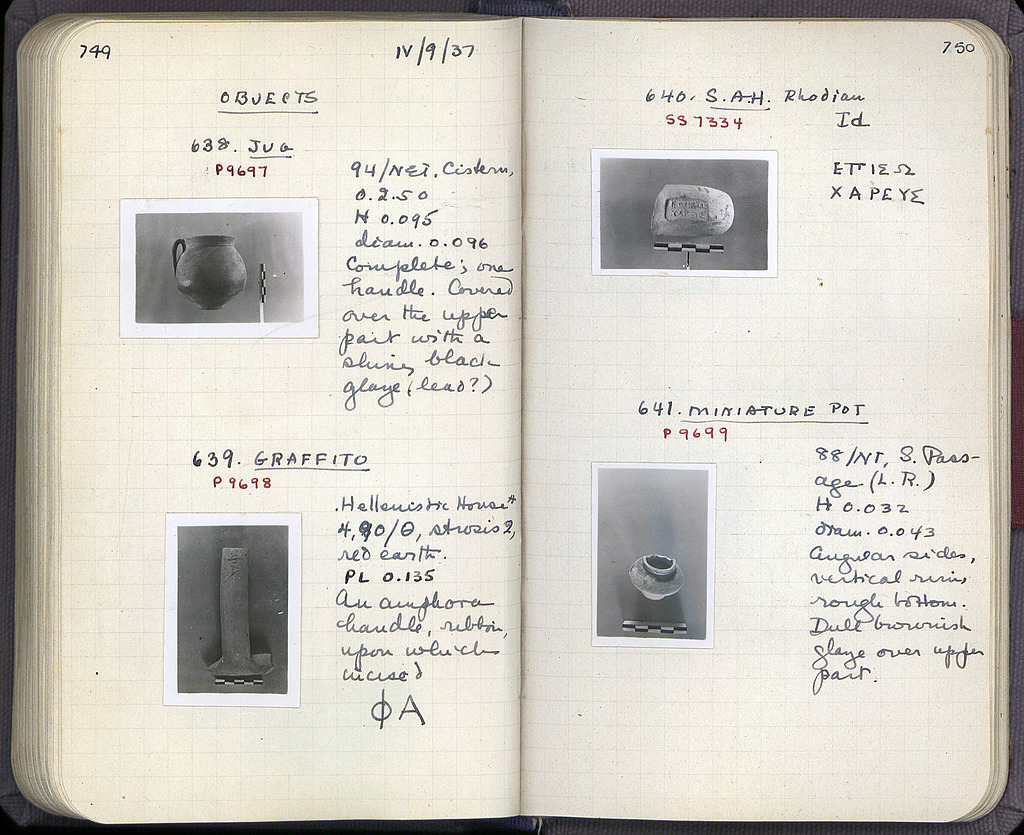 749
IV/9/37
OBJECTS
638. JUG
P9697
94/ΝΣΤ. Cistern,
0.2.50
H 0.095
diam. 0.096
Complete; one
handle. Covered
over the upper
part with a
shiny black
glaze (lead?)
639. GRAFFITO
P9698
Hellenistic House
4, 90/Θ, strosis 2,
red earth.
PL 0.135
An amphora
handle, ribbon,
upon which
incised
ΦΑ
750
640. S.A.H. Rhodian
SS 7334
Id
ΕΠΙΣΩ
ΧΑΡΕΥΣ
641. MINIATURE POT
P 9699
88/ΝΤ, S. Pass-
age (L.R.)
H 0.032
diam. 0.043
Angular sides,
vertical rim,
rough bottom.
Dull brownish
glaze over upper
part.